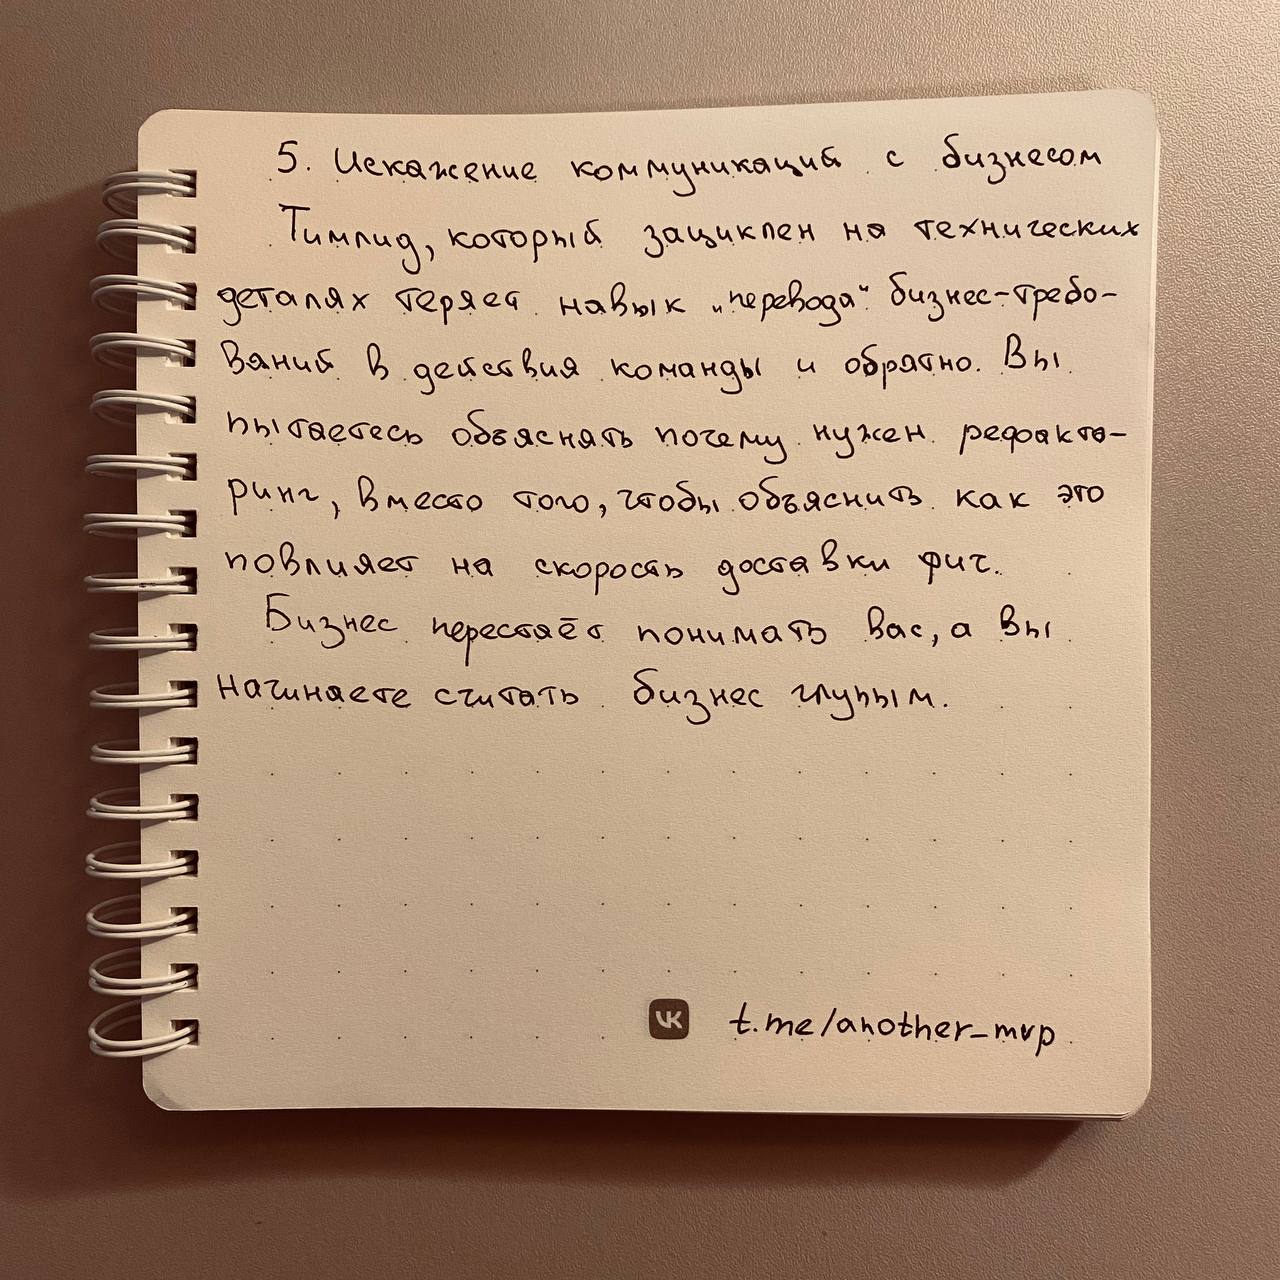 5. Искажение коммуникаций с бизнесом
Тимлид, который зациклен на технических
деталях теряет навык „перевода“ бизнес-требо-
ваний в действия команды и обратно. Вы
пытаетесь объяснять почему нужен рефакто-
ринг, вместо того, чтобы объяснить как это
повлияет на скорость доставки фич.
Бизнес перестаёт понимать вас, а вы
начинаете считать бизнес глупым.
VK t.me/another_mvp